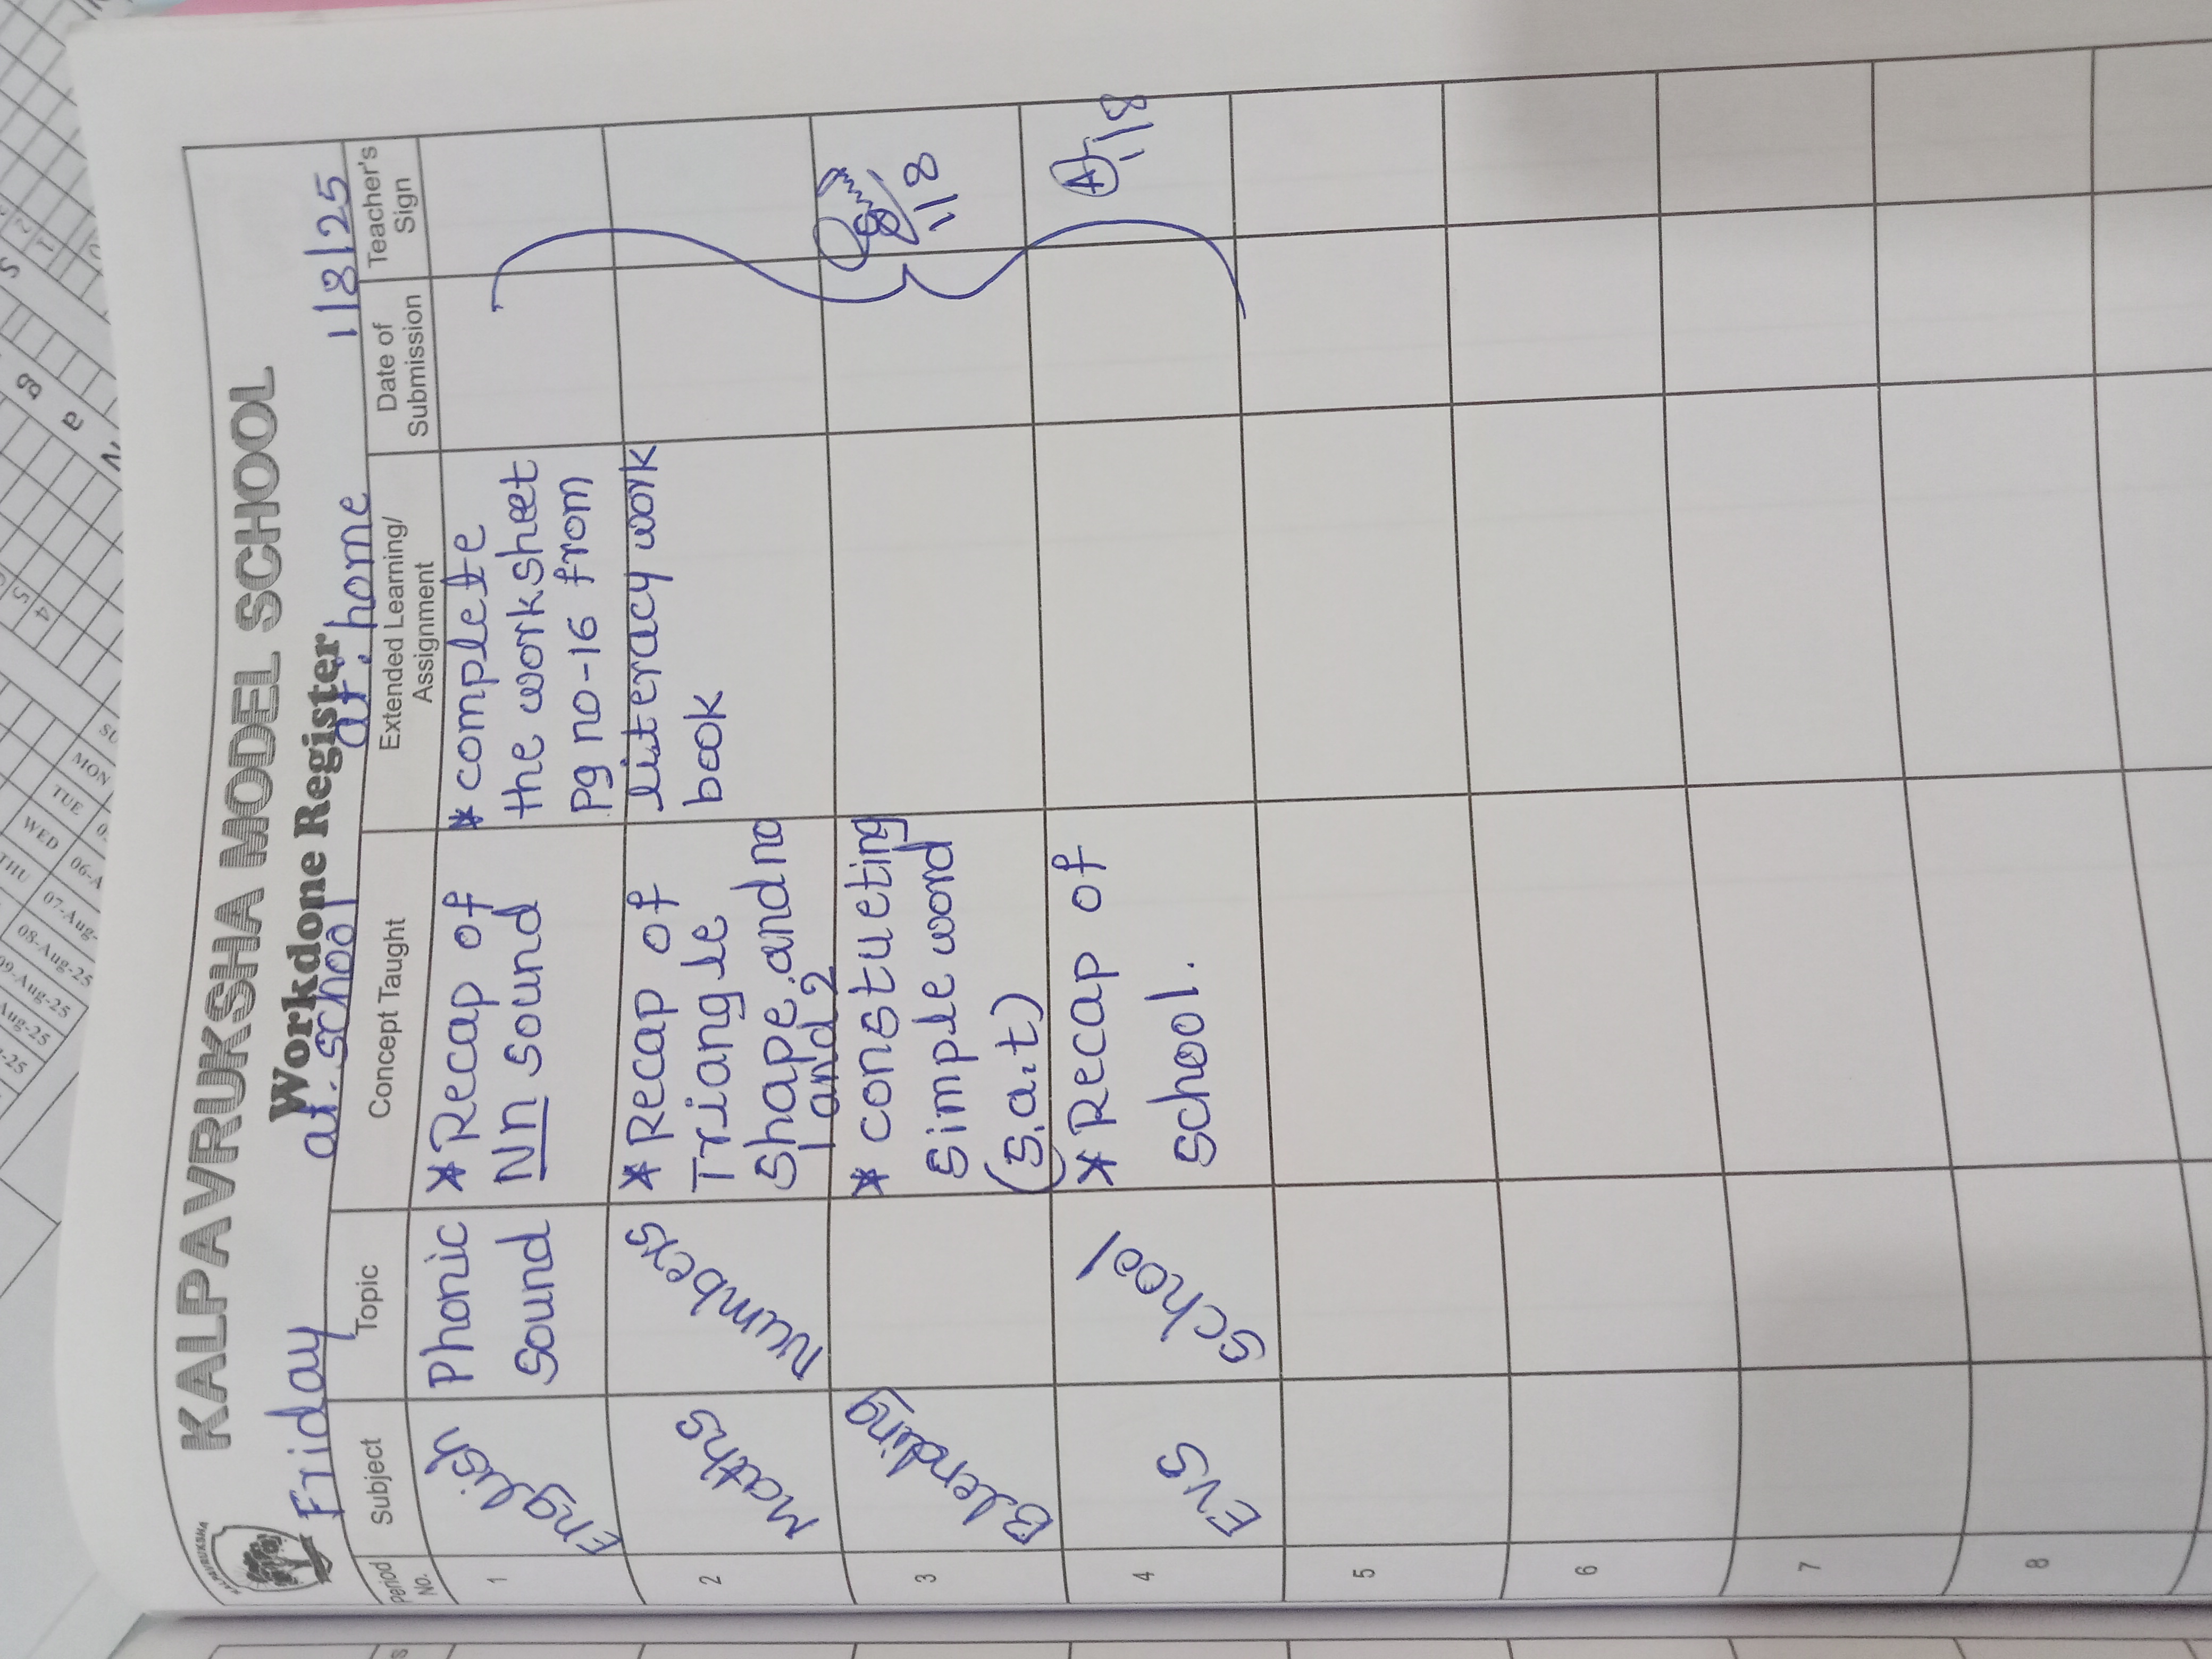 KALPAVRUKSHA
KALPAVRUKSHA MODEL SCHOOL
Workdone Register
Friday
at. school
at. home
1/8/25
Period No.
Subject
Topic
Concept Taught
Extended Learning/
Assignment
Date of
Submission
Teacher's
Sign
1
English
Phonic
sound
*Recap of
Nn sound
* complete
the worksheet
Pg no-16 from
literacy work
book
2
Maths
Numbers
*Recap of
Triangle
shape.and no
1 and 2
3
Blending
* constueting
simple word
(s.a.t)
1/8
4
Evs
school
*Recap of
school.
1/8
5
6
7
8
SU
MON
TUE
WED
THU
06-A
07-Aug-
08-Aug-25
09-Aug-25
Aug-25
-25